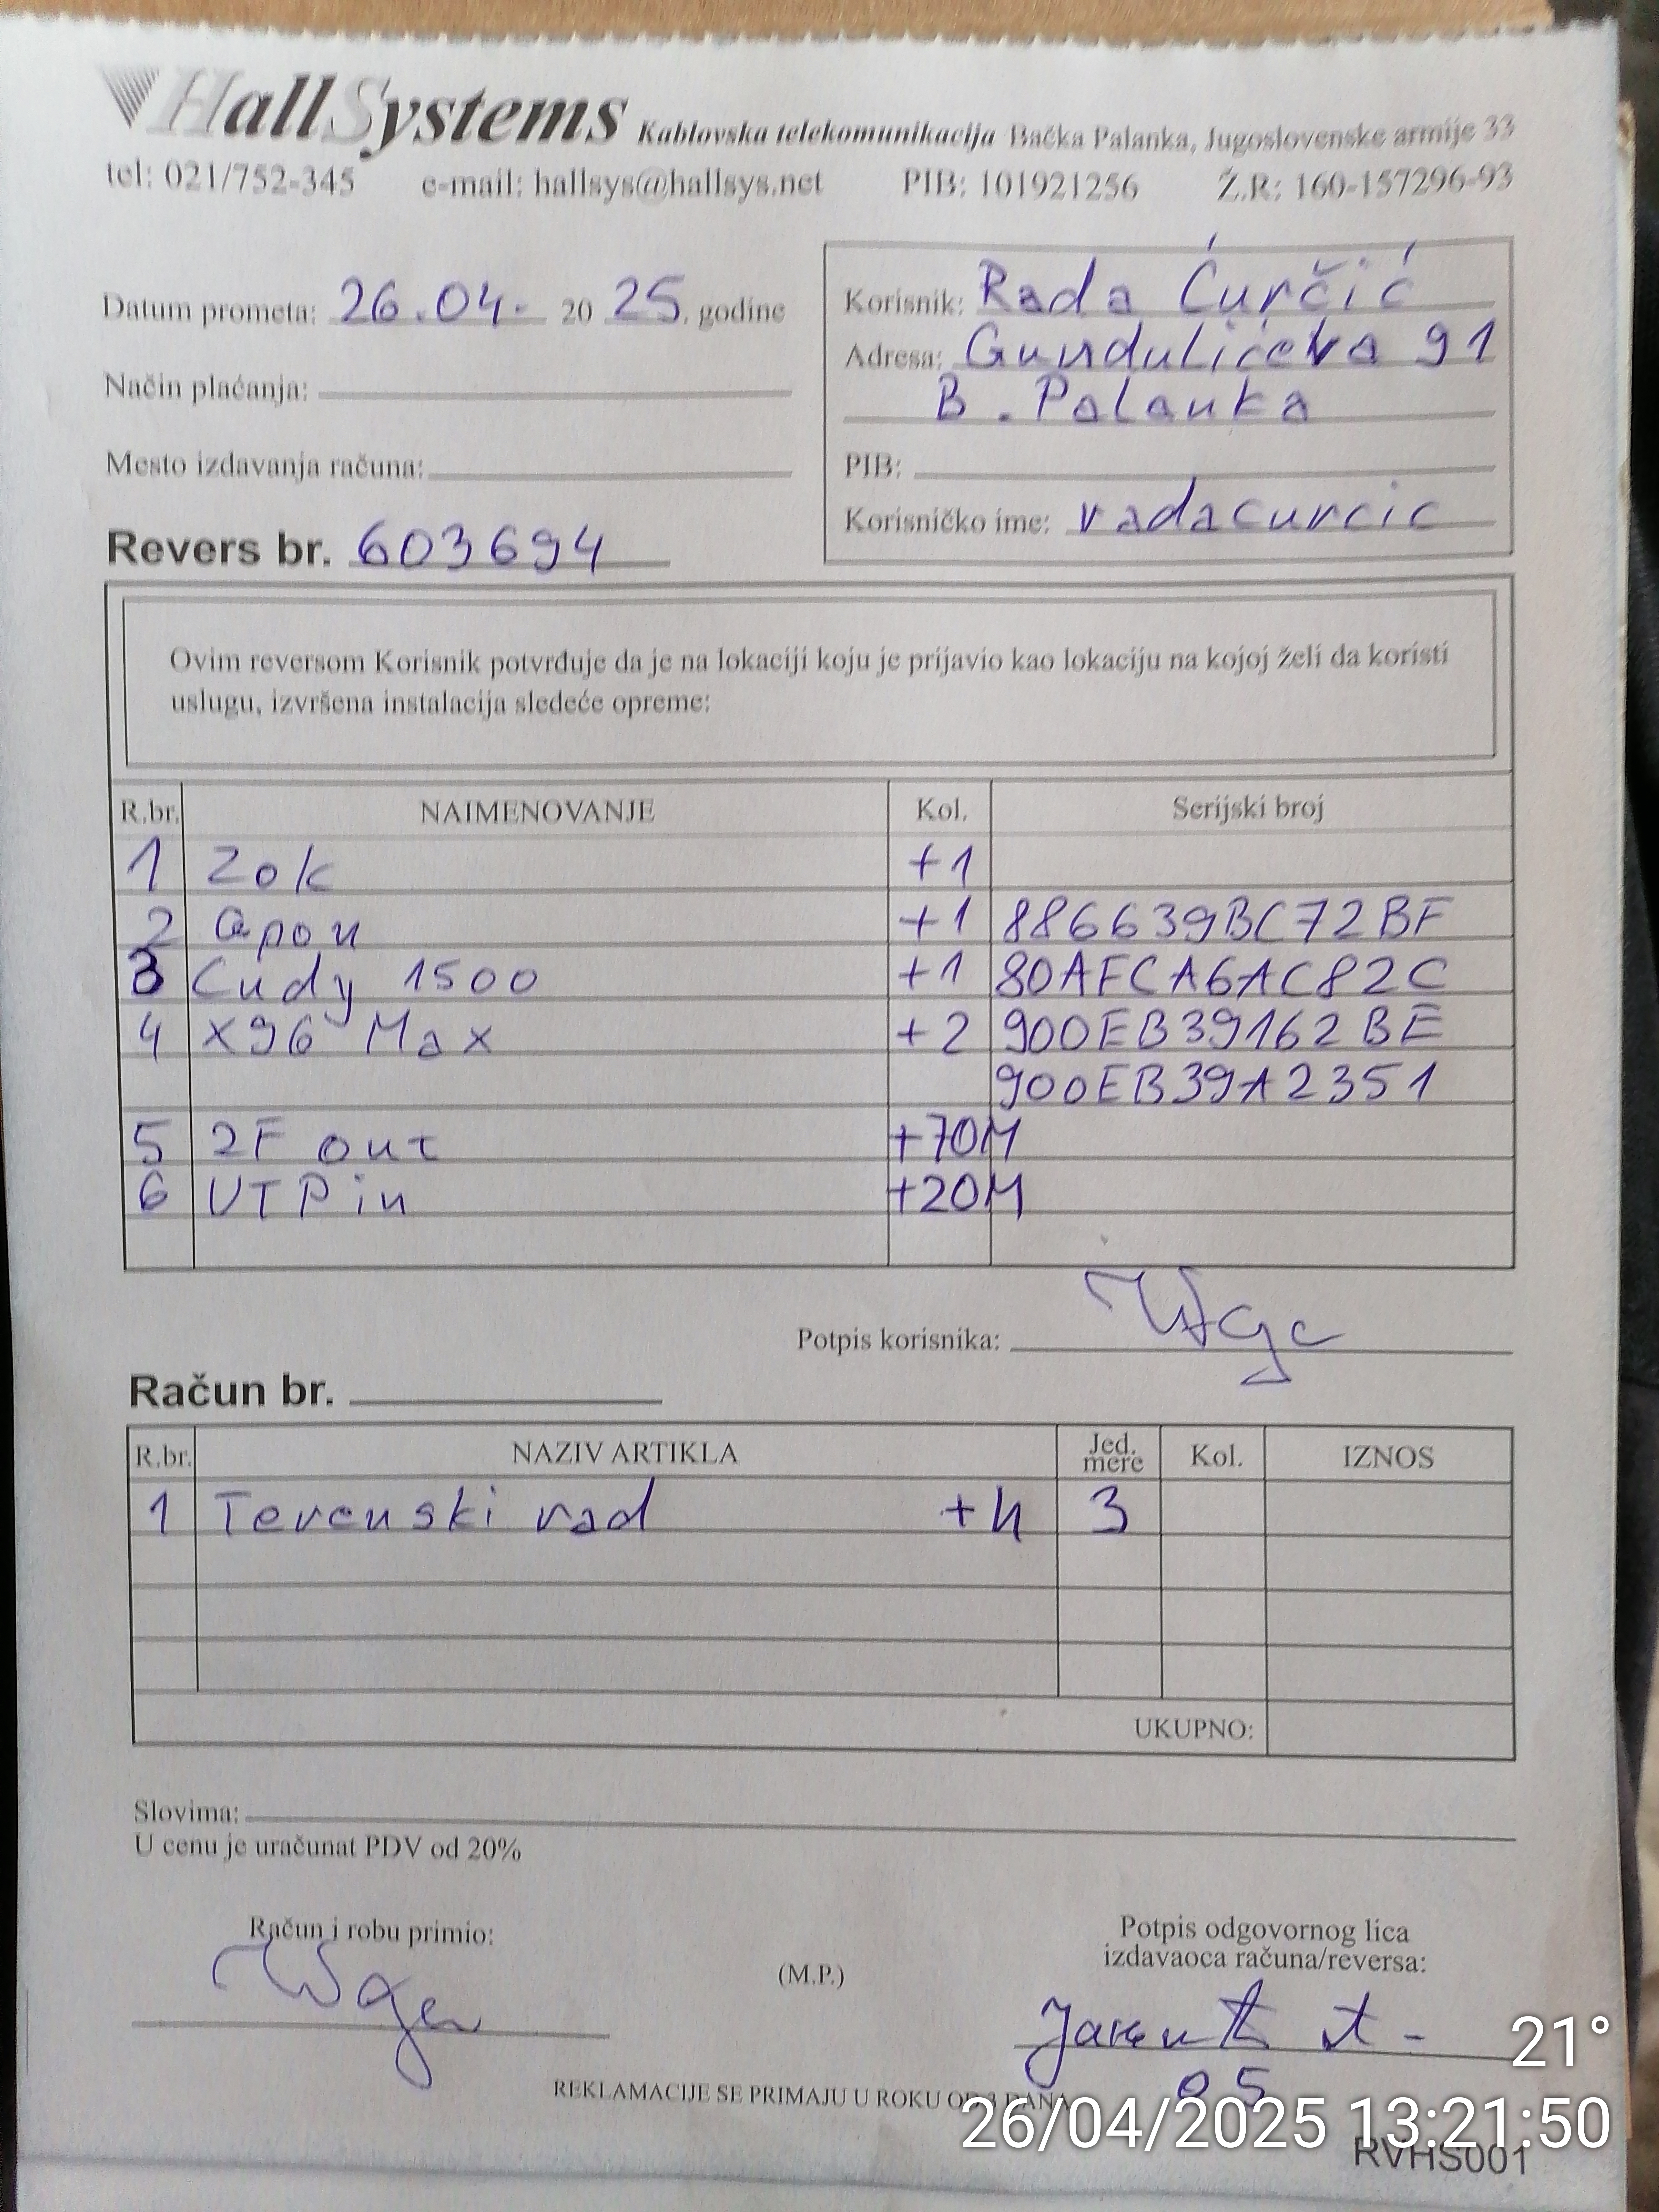 HallSystems Kablovska telekomunikacija Bačka Palanka, Jugoslovenske armije 33
tel: 021/752-345 e-mail: hallsys@hallsys.net PIB: 101921256 Ž.R: 160-157296-93
Datum prometa: 26.04. 20 25. godine
Način plaćanja:
Mesto izdavanja računa:
Revers br. 603694
Korisnik: Rada Ćurčić
Adresa: Gundulićeva 91
B. Palanka
PIB:
Korisničko ime: radacurcic
Ovim reversom Korisnik potvrđuje da je na lokaciji koju je prijavio kao lokaciju na kojoj želi da koristi
uslugu, izvršena instalacija sledeće opreme:
R.br. NAIMENOVANJE Kol. Serijski broj
1 Zok +1
2 Gpon +1 886639BC72BF
3 Cudy 1500 +1 80AFCA6AC82C
4 X96 Max +2 900EB39162BE
900EB39A2351
5 2F out +70M
6 UTP in +20M
Potpis korisnika:
Račun br.
R.br. NAZIV ARTIKLA Jed. mere Kol. IZNOS
1 Terenski rad +4 3
UKUPNO:
Slovima:
U cenu je uračunat PDV od 20%
Račun i robu primio:
(M.P.)
Potpis odgovornog lica
izdavaoca računa/reversa:
05
REKLAMACIJE SE PRIMAJU U ROKU OD 3 DANA
21°
26/04/2025 13:21:50
RVHS001